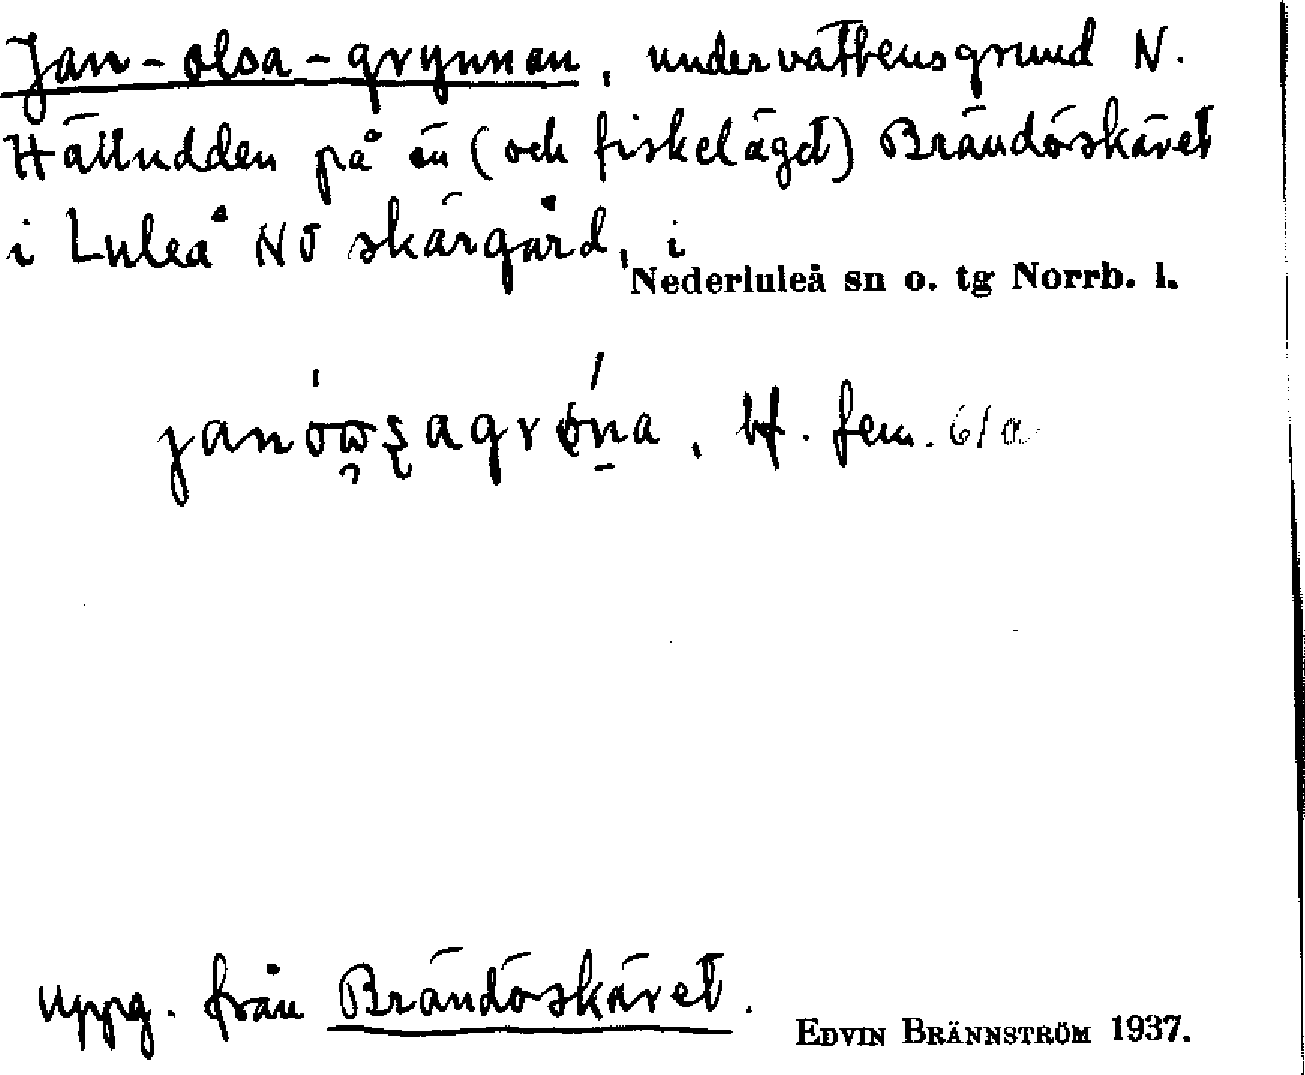 Jan-olsa-grynnan, undervattensgrund N.
Hälludden på ön (och fiskeläget) Brändöskäret
i Luleå NÖ skärgård, i
Nederluleå sn o. tg Norrb. l.
bf. fem. 61a
uppg. från Brändöskäret.
EDVIN BRÄNNSTRÖM 1937.